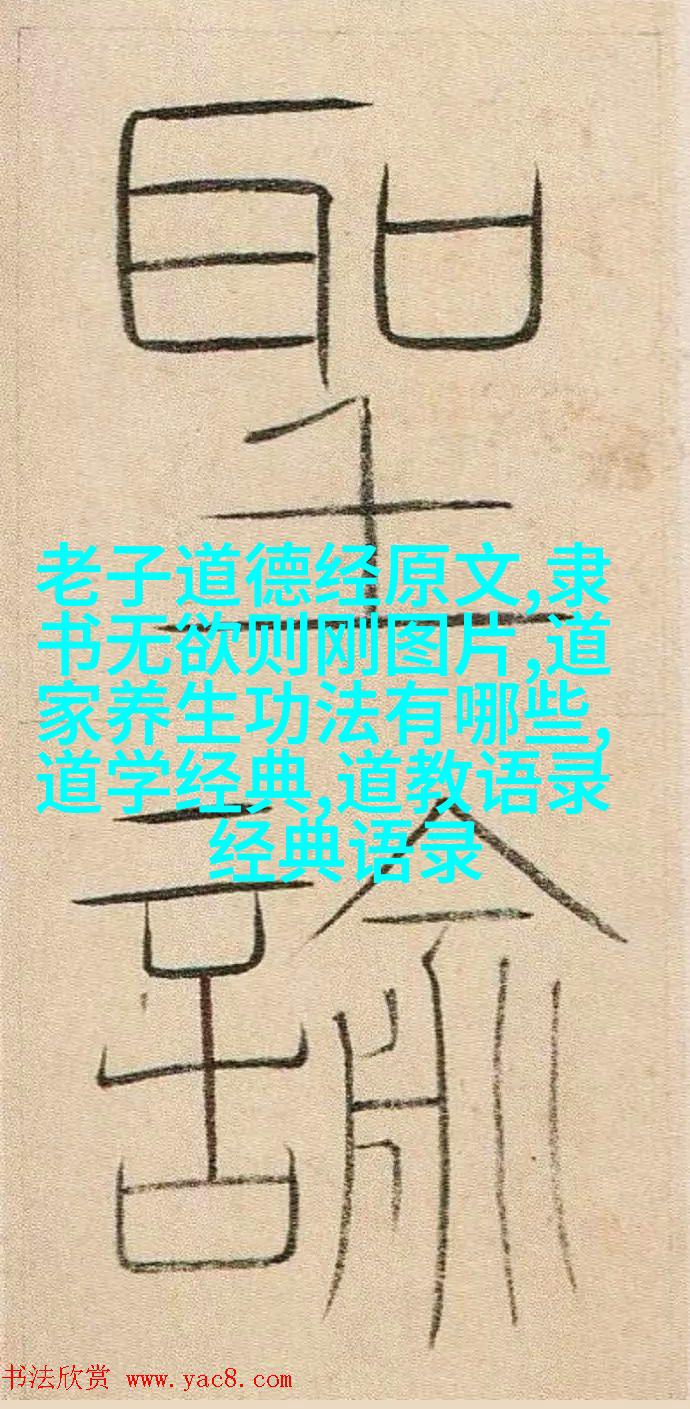 聖
諭
老子道德经原文,隶
书无欲则刚图片,道
家养生功法有哪些,
道学经典,道教语录
经典语录
书法欣赏 www.yac8.com